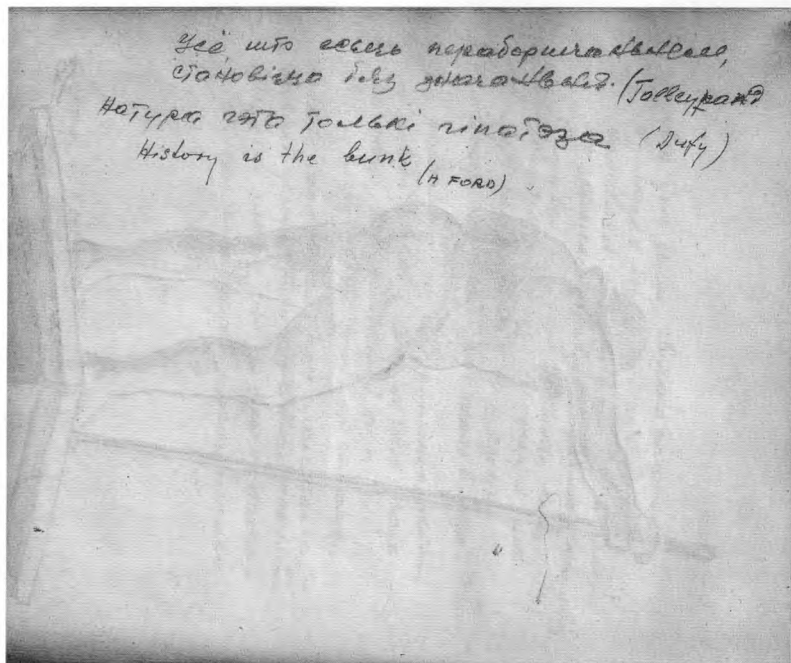 Усё, што ёсць перабольшанным,
становіцца без значэння. (Talleyrand
Натура гэта толькі гіпатэза (Dufy)
History is the bunk (H FORD)